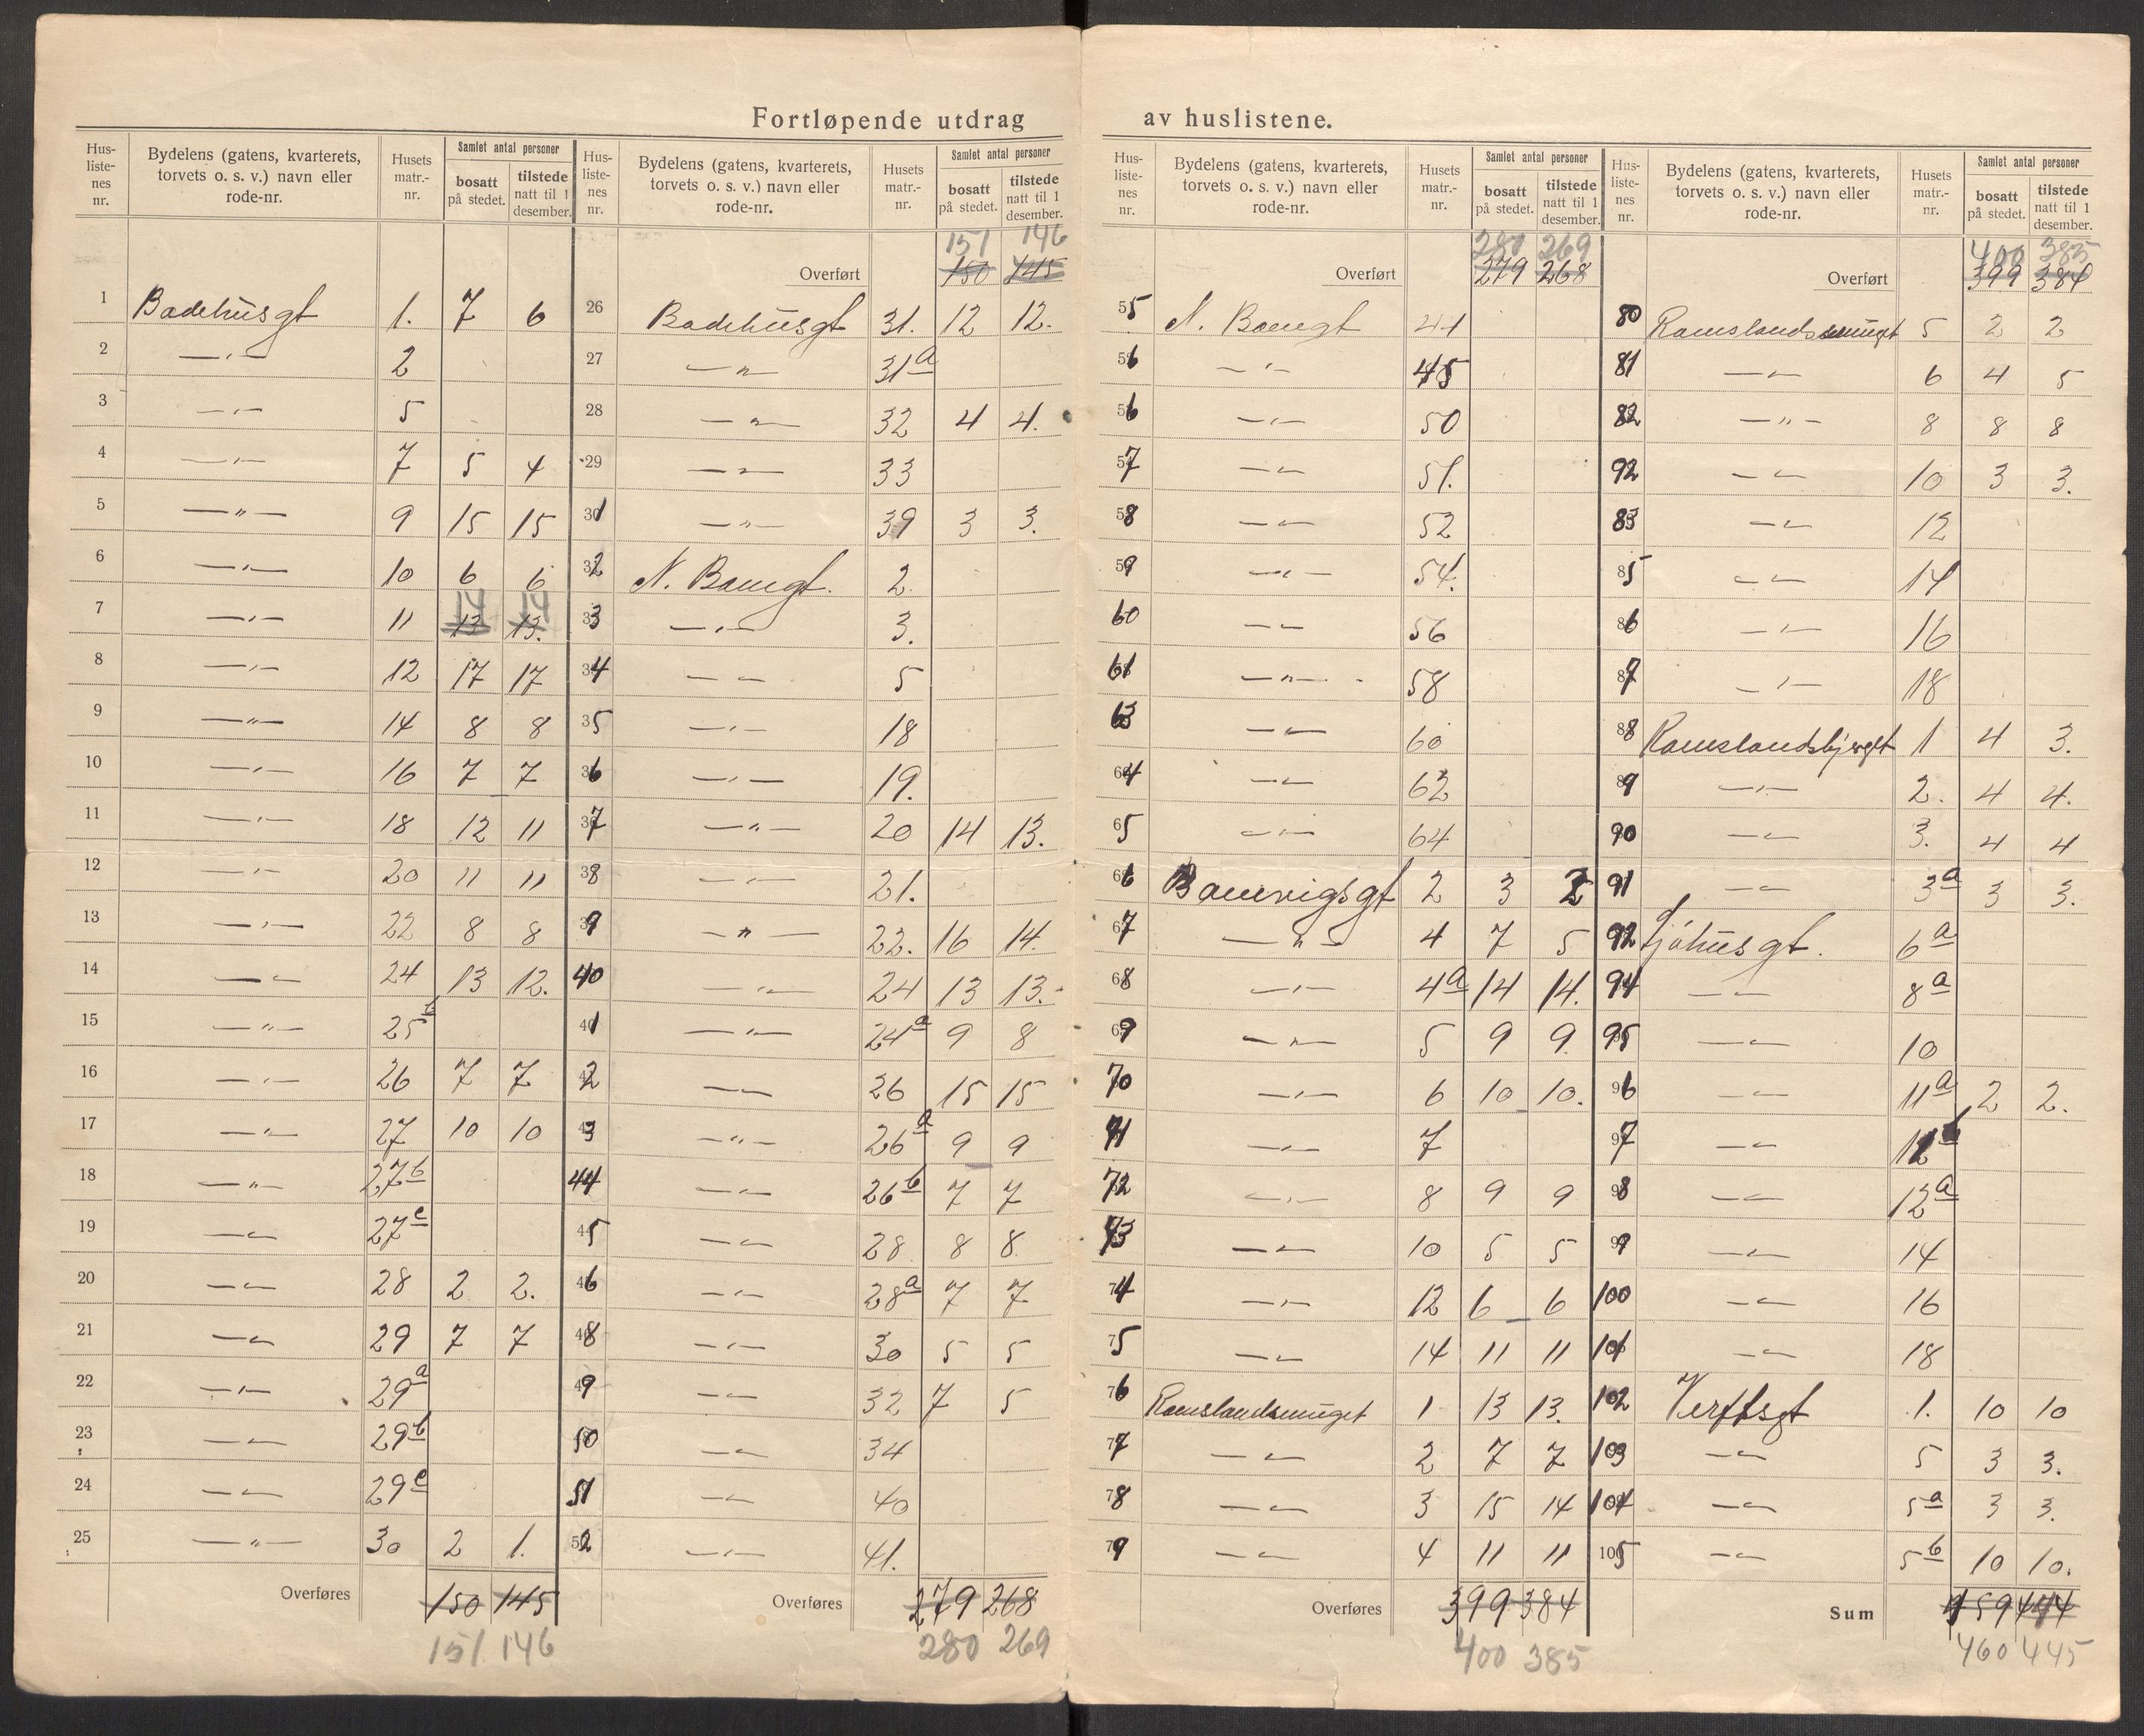 Fortløpende utdrag av huslistene.
Hus-listenes nr. | Bydelens (gatens, kvarterets, torvets o. s. v.) navn eller rode-nr. | Husets matr.-nr. | Samlet antal personer bosatt på stedet. | tilstede natt til 1 desember.
1 Badehusgt 1. 7 6
2 —„— 2
3 —„— 5
4 —„— 7 5 4
5 —„— 9 15 15
6 —„— 10 6 6
7 —„— 11 13 13. 14 14
8 —„— 12 17 17
9 —„— 14 8 8
10 —„— 16 7 7
11 —„— 18 12 11
12 —„— 20 11 11
13 —„— 22 8 8
14 —„— 24 13 12.
15 —„— 25b
16 —„— 26 7 7
17 —„— 27 10 10
18 —„— 27b
19 —„— 27c
20 —„— 28 2 2.
21 —„— 29 7 7
22 —„— 29a
23 —„— 29b
24 —„— 29c
25 —„— 30 2 1.
Overføres 150 145
151 146
Hus-listenes nr. | Bydelens (gatens, kvarterets, torvets o. s. v.) navn eller rode-nr. | Husets matr.-nr. | Samlet antal personer bosatt på stedet. | tilstede natt til 1 desember.
151 146
Overført 150 145
26 Badehusgt 31. 12 12.
27 —„— 31a
28 —„— 32 4 4.
29 —„— 33
31 —„— 39 3 3.
32 N. Banegt. 2.
33 —„— 3.
34 —„— 5
35 —„— 18
36 —„— 19.
37 —„— 20 14 13.
38 —„— 21.
39 —„— 22. 16 14.
40 —„— 24 13 13.
41 —„— 24a 9 8
42 —„— 26 15 15
43 —„— 26a 9 9
44 —„— 26b 7 7
45 —„— 28 8 8
46 —„— 28a 7 7
48 —„— 30 5 5
49 —„— 32 7 5
50 —„— 34
51 —„— 40
52 —„— 41.
Overføres 279 268
280 269
Hus-listenes nr. | Bydelens (gatens, kvarterets, torvets o. s. v.) navn eller rode-nr. | Husets matr.-nr. | Samlet antal personer bosatt på stedet. | tilstede natt til 1 desember.
280 269
Overført 279 268
55 N. Banegt 44
56 —„— 45
56 —„— 50
57 —„— 51.
58 —„— 52
59 —„— 54.
60 —„— 56
61 —„— 58
63 —„— 60
64 —„— 62
65 —„— 64
66 Banevigsgt 2 3 2
67 —„— 4 7 5
68 —„— 4a 14 14.
69 —„— 5 9 9.
70 —„— 6 10 10.
71 —„— 7
72 —„— 8 9 9
73 —„— 10 5 5
74 —„— 12 6 6
75 —„— 14 11 11
76 Ramslandsmuget 1 13 13.
77 —„— 2 7 7
78 —„— 3 15 14
79 —„— 4 11 11
Overføres 399 384
400 385
Hus-listenes nr. | Bydelens (gatens, kvarterets, torvets o. s. v.) navn eller rode-nr. | Husets matr.-nr. | Samlet antal personer bosatt på stedet. | tilstede natt til 1 desember.
400 385
Overført 399 384
80 Ramslandsmuget 5 2 2
81 —„— 6 4 5
82 —„— 8 8 8
92 —„— 10 3 3.
83 —„— 12
85 —„— 14
86 —„— 16
87 —„— 18
88 Ramslandsbjerget 1 4 3.
89 —„— 2. 4 4.
90 —„— 3. 4 4
91 —„— 3a 3 3.
92 Sjøhusgt. 6a
94 —„— 8a
95 —„— 10
96 —„— 11a 2 2.
97 —„— 12
98 —„— 12a
99 —„— 14
100 —„— 16
101 —„— 18
102 Verftsgt 1. 10 10
103 —„— 5 3 3.
104 —„— 5a 3 3.
105 —„— 5b 10 10.
Sum 459 444
460 445